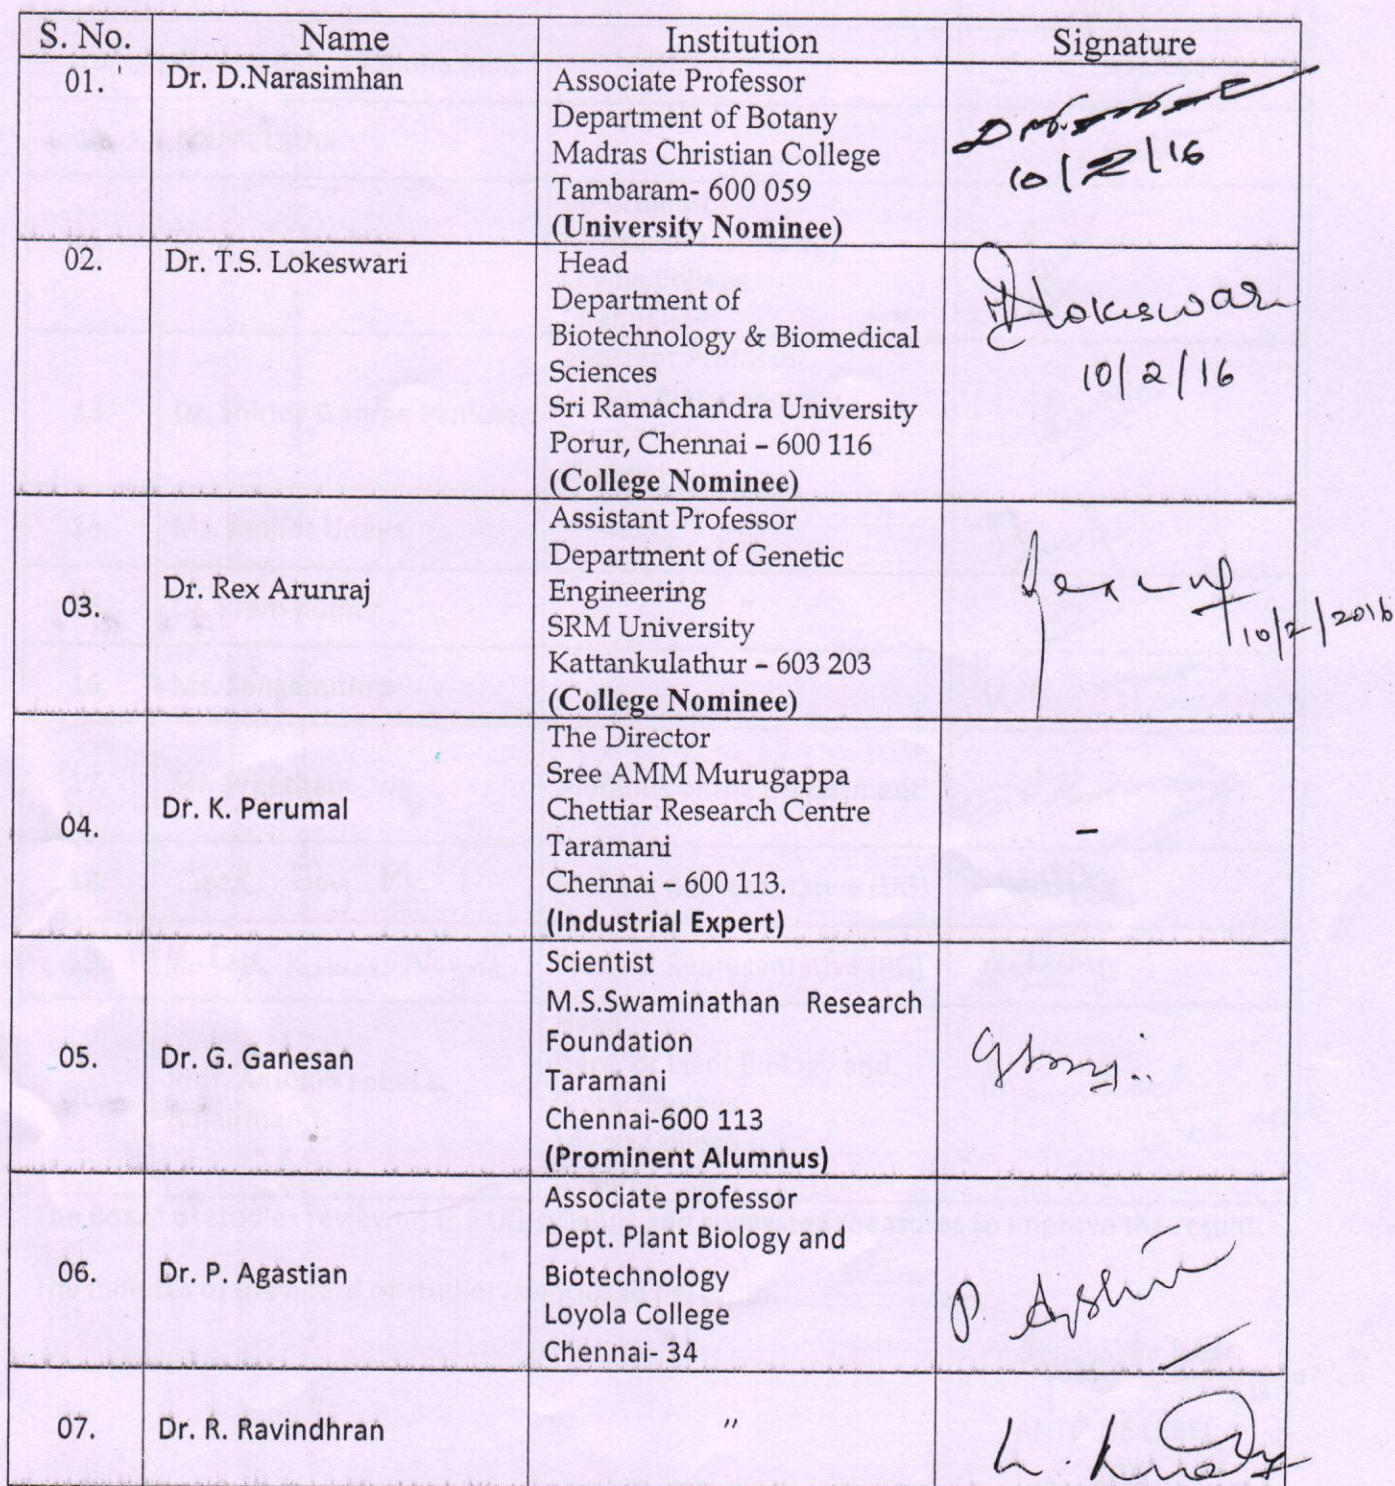 S. No. Name Institution Signature
01. Dr. D.Narasimhan Associate Professor
Department of Botany
Madras Christian College
Tambaram- 600 059
(University Nominee)
10/2/16
02. Dr. T.S. Lokeswari Head
Department of
Biotechnology & Biomedical
Sciences
Sri Ramachandra University
Porur, Chennai – 600 116
(College Nominee)
Lokeswari
10/2/16
03. Dr. Rex Arunraj Assistant Professor
Department of Genetic
Engineering
SRM University
Kattankulathur – 603 203
(College Nominee)
10/2/2016
04. Dr. K. Perumal The Director
Sree AMM Murugappa
Chettiar Research Centre
Taramani
Chennai – 600 113.
(Industrial Expert)
-
05. Dr. G. Ganesan Scientist
M.S.Swaminathan Research
Foundation
Taramani
Chennai-600 113
(Prominent Alumnus)
06. Dr. P. Agastian Associate professor
Dept. Plant Biology and
Biotechnology
Loyola College
Chennai- 34
P.
07. Dr. R. Ravindhran "